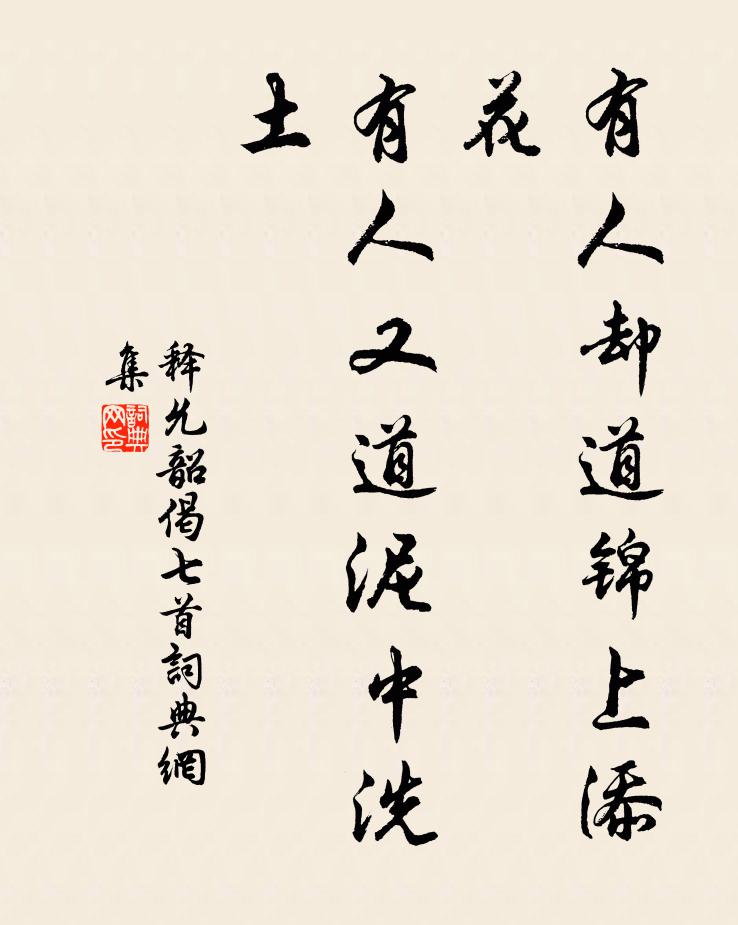 有人却道锦上添
花
有人又道泥中洗
土
释允韶偈七首詞典網
集
詞典网印